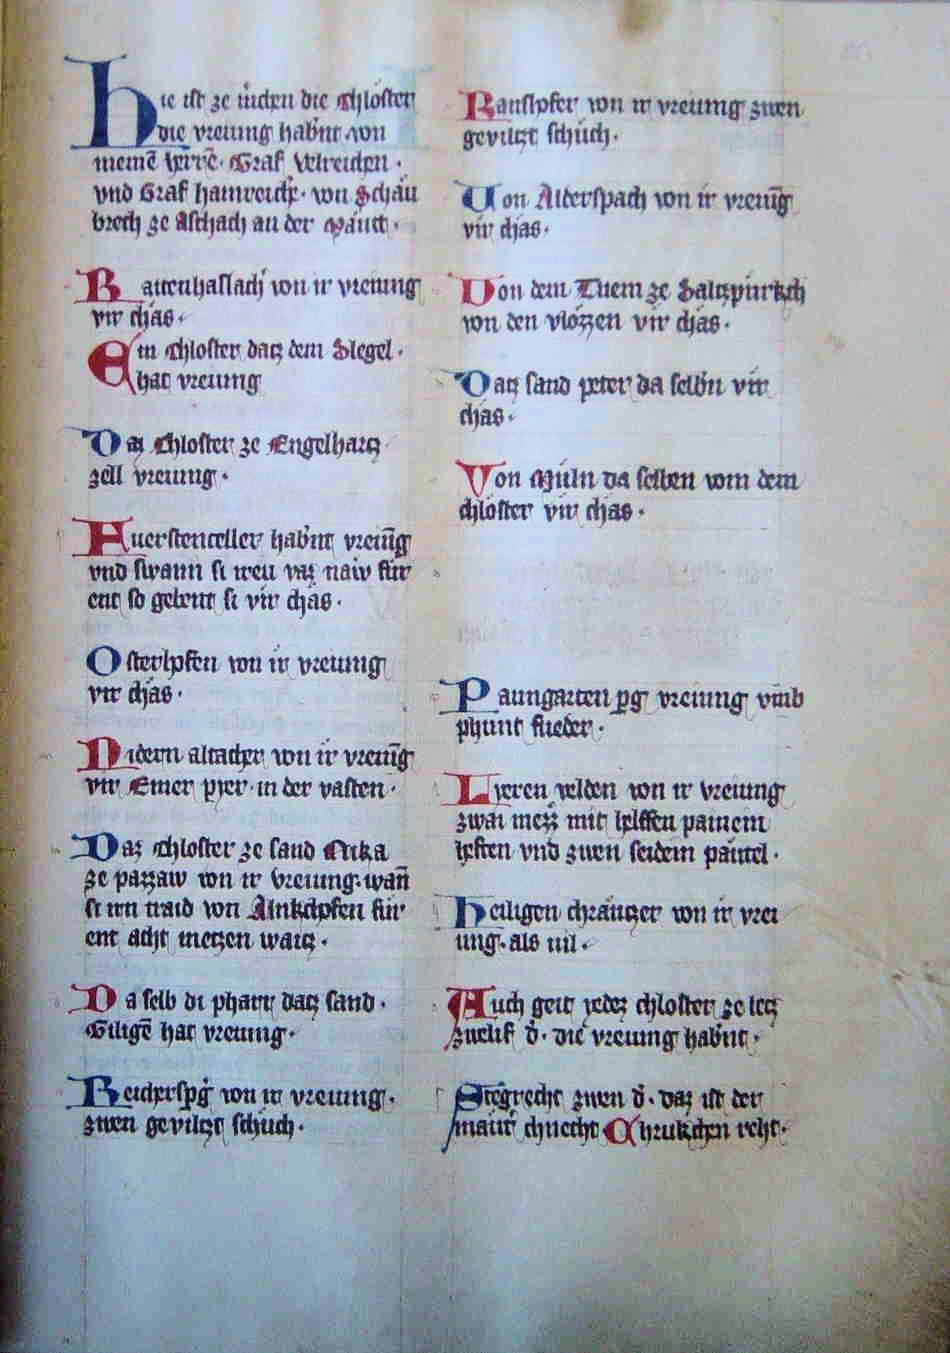 Hie ist ze mͤrchen die Chlöster
die vreiung habnt von
meinē herrē. Graf Vlreichen.
vnd Graf hainreich. von Schäu
berch ze Aschach an der Mäutt.
Raittenhaslach von ir vreiung
vir chäs.
Ein Chloster datz dem Slegel.
hat vreiung
Daz Chloster ze Engelhartz
zell vreiung.
Fuerstenceller habnt vreiūg
vnd swann si iren vaz naiv für
ent so gebent si vir chäs.
Osterhofen von ir vreiung
vir chäs.
Nidern altacher von ir vreiūg
vir Emer pier in der vasten.
Daz Chloster ze sand Nika
ze pazzaw von ir vreiung. wañ
si irn traid von Ainkchofen für
ent acht metzen waitz.
Da selb di pharr datz sand.
Giligē hat vreiung.
Reicherspg von ir vreiung.
zwen geviltzt schüch.
Ranshofer von ir vreiung zwen
geviltzt schüch.
Von Alderspach von ir vreiūg
vir chäs.
Von dem Tuem ze Saltzpürkch
von den vlözzen vir chäs.
Datz sand peter da selbn vir
chäs.
Von Müln da selben vom dem
chlöster vir chäs.
Paungarten pg vreiung vmb
phunt fueder.
Lieren velden von ir vreiung
zwai mezz mit helffen painein
heften vnd zwen seidein päutel.
Heiligen chräutzer von ir vrei
ung. als vil.
Auch geit yedez chloster ze letz
zwelif d. die vreiung habnt.
Stegrecht zwen d. daz ist der
mäutt chnecht Chrukchen reht.